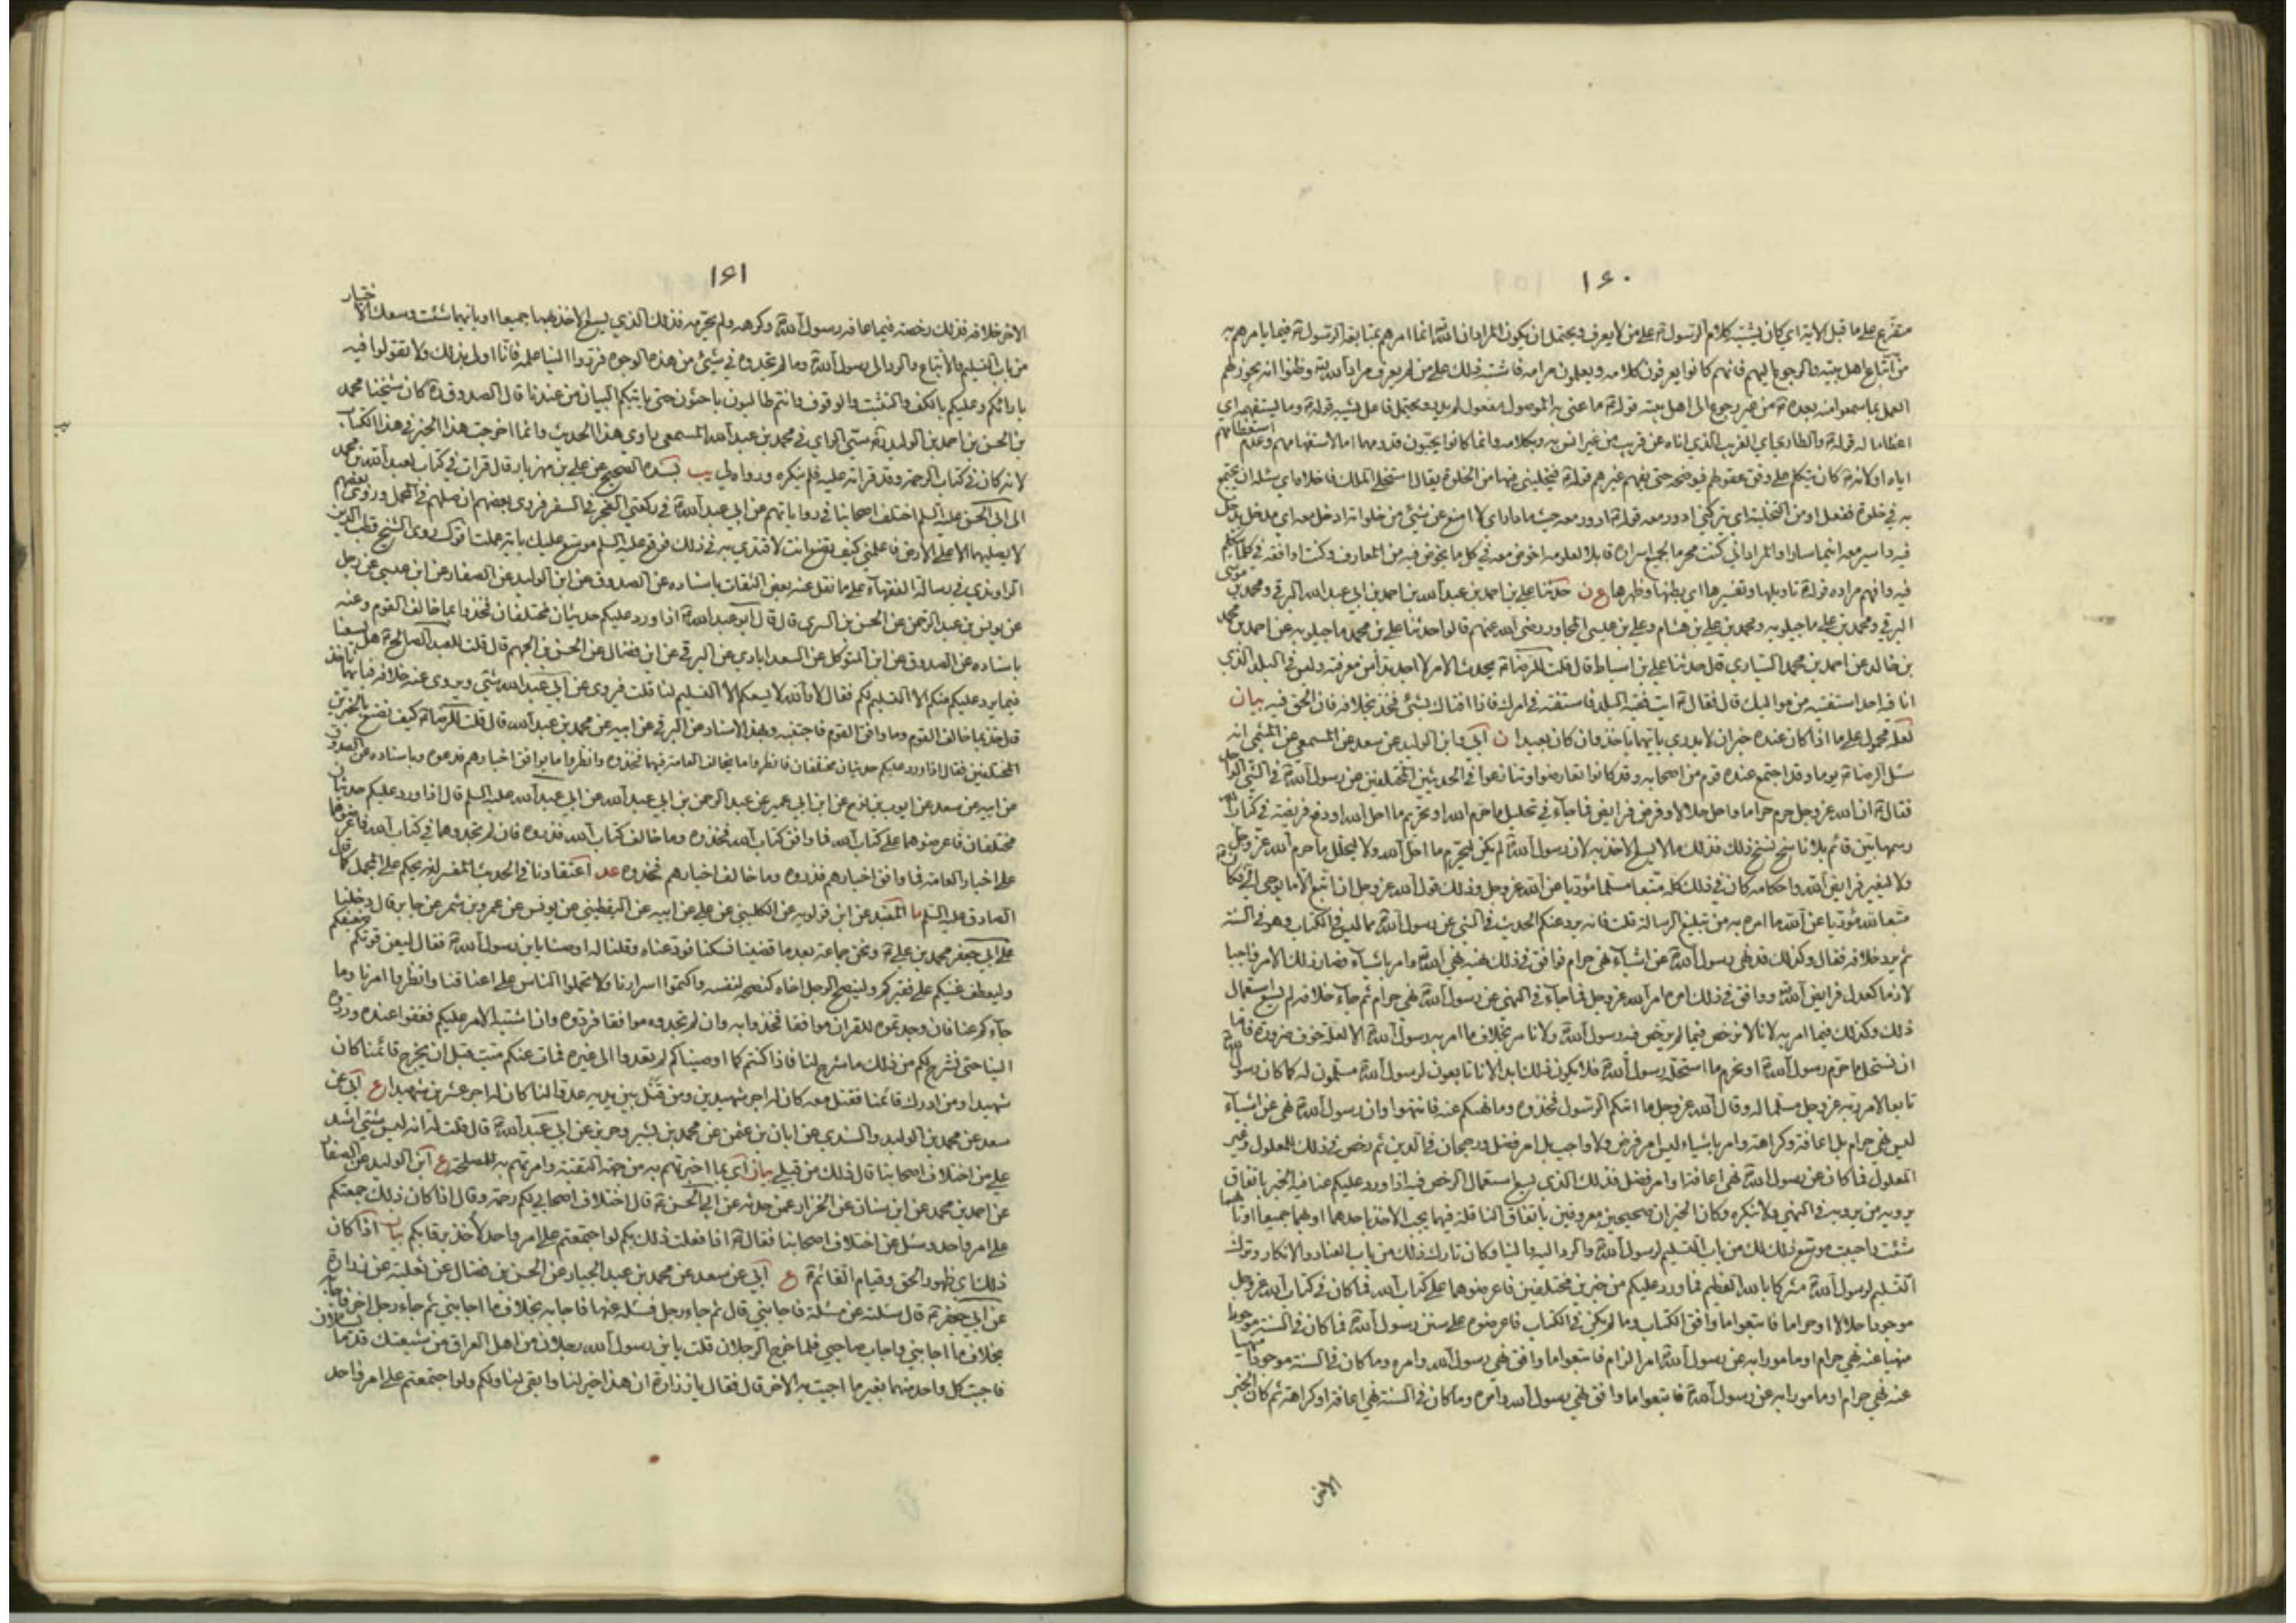 ١٦٠
متفرع على ما قبل الآية اي كان يشتبه كلام الرسول ص على من لا يعرف ويحتمل ان يكون المراد ان الله تعالى انما امرهم بمتابعة الرسول ص فيما يامرهم به
من اتباع اهل بيته والرجوع اليهم فانهم كانوا يعرفون كلامه ويعلمون مرامه فاشتبه ذلك على من لم يعرف مراد الله تعالى وظنوا انه يجوز لهم
العمل بما سمعوا منه بعده ص من غير رجوع الى اهل بيته قوله ع ما عنى به الموصول مفعول لم يدر ويحتمل فاعل يشتبه قوله ع وما يستفهمه اي
اعظاما له قوله ع والطاري اي الغريب الذي اتاه عن قريب من غير انس به وبكلامه وانما كانوا يحبون قدومهما اما لاستفهامهم وعدم استعظامهم
اياه او لانه ص كان يتكلم على وفق عقولهم فيوضحه حتى يفهم غيرهم قوله ع فيخليني فيها من الخلوة يقال استخلى الملك فاخلاه اي سئله ان يجتمع
به في خلوة ففعل او من التخلية اي يتركني ادور معه قوله ع ادور معه حيث ما دار اي لا امنع عن شئ من خلواته ادخل معه اي مدخل يدخل
فيه واسير معه اينما سار او المراد اني كنت محرما لجميع اسراره قابلا لعلومه اخوض معه في كل ما يخوض فيه من المعارف وكنت اوافقه في كل ما يتكلم
فيه وافهم مراده قوله ع تاويلها وتفسيرها اي بطنها وظهرها ع ن حدثنا علي بن احمد بن عبد الله بن احمد بن ابي عبد الله البرقي ومحمد بن موسى
البرقي ومحمد بن علي ماجيلويه ومحمد بن علي بن هشام وعلي بن عيسى المجاور رضي الله عنهم قالوا حدثنا علي بن محمد ماجيلويه عن احمد بن محمد
بن خالد عن احمد بن محمد السياري قال حدثنا علي بن اسباط قال قلت للرضا ع يحدث الامر لا اجد بدا من معرفته وليس في البلد الذي
انا فيه احد استفتيه من مواليك قال فقال ع ايت فقيه البلد فاستفته في امرك فاذا افتاك بشئ فخذ بخلافه فان الحق فيه بيان
لعله محمول على ما اذا كان عنده خبران لا يدري بايهما ياخذ وان كان بعيدا ن ابي وابن الوليد عن سعد عن المسمعي عن الميثمي انه
سئل الرضا ع يوما وقد اجتمع عنده قوم من اصحابه وقد كانوا تعارضوا وتنازعوا في الحديثين المختلفين عن رسول الله ص في الشئ الواحد
فقال ع ان الله عز وجل حرم حراما واحل حلالا وفرض فرايض فما جاء في تحليل ما حرم الله او تحريم ما احل الله او دفع فريضة في كتاب الله
رسمها بين قائم بلا ناسخ نسخ ذلك فذلك ما لا يسع الاخذ به لان رسول الله ص لم يكن ليحرم ما احل الله ولا ليحلل ما حرم الله عز وجل
ولا ليغير فرايض الله واحكامه كان في ذلك كله متبعا مسلما مؤديا عن الله عز وجل وذلك قول الله عز وجل ان اتبع الا ما يوحى الي فكان ص
متبعا لله مؤديا عن الله ما امره به من تبليغ الرسالة قلت فانه يرد عنكم الحديث في الشئ عن رسول الله ص مما ليس في الكتاب وهو في السنة
ثم يرد خلافه فقال وكذلك قد نهى رسول الله ص عن اشياء نهى حرام فوافق في ذلك نهيه نهي الله تعالى وامر باشياء فصار ذلك الامر واجبا
لازما كعدل فرايض الله تعالى ووافق في ذلك امره امر الله عز وجل فما جاء في النهي عن رسول الله ص نهي حرام ثم جاء خلافه لم يسع استعمال
ذلك وكذلك فيما امر به لانا لا نرخص فيما لم يرخص فيه رسول الله ص ولا نامر بخلاف ما امر به رسول الله ص الا لعلة خوف ضرورة فاما
ان نستحل ما حرم رسول الله ص او نحرم ما استحله رسول الله ص فلا يكون ذلك ابدا لانا تابعون لرسول الله ص مسلمون له كما كان رسول الله ص
تابعا لامر ربه عز وجل مسلما له وقال الله عز وجل ما اتيكم الرسول فخذوه وما نهيكم عنه فانتهوا وان رسول الله ص نهى عن اشياء
ليس نهي حرام بل اعافة وكراهة وامر باشياء ليس امر فرض ولا واجب بل امر فضل ورجحان في الدين ثم رخص في ذلك للمعلول وغير
المعلول فما كان عن رسول الله ص نهي اعافة او امر فضل فذلك الذي يسع استعمال الرخص فيه اذا ورد عليكم عنا فيه الخبر باتفاق
يرويه من يرويه في النهي ولا ينكره وكان الخبران صحيحين معروفين باتفاق الناقلة فيهما يجب الاخذ باحدهما او بهما جميعا او بايهما
شئت واحببت موسع ذلك لك من باب التسليم لرسول الله ص والرد اليه والينا وكان تارك ذلك من باب العناد والانكار وترك
التسليم لرسول الله ص مشركا بالله العظيم فما ورد عليكم من خبرين مختلفين فاعرضوهما على كتاب الله فما كان في كتاب الله عز وجل
موجودا حلالا او حراما فاتبعوا ما وافق الكتاب وما لم يكن في الكتاب فاعرضوه على سنن رسول الله ص فما كان في السنة موجودا
منهيا عنه نهي حرام او مامورا به عن رسول الله ص امر الزام فاتبعوا ما وافق نهي رسول الله وامره وما كان في السنة موجودا منهيا
عنه نهي حرام او مامورا به عن رسول الله ص فاتبعوا ما وافق نهي رسول الله وامره وما كان في السنة نهي اعافة او كراهة ثم كان الخبر
الاخر
١٦١
الاخر خلافه فذلك رخصة فيما عافه رسول الله ص وكرهه ولم يحرمه فذلك الذي يسع الاخذ بهما جميعا او بايهما شئت وسعك الاختيار
من باب التسليم والاتباع والرد الى رسول الله ص وما لم تجدوه في شئ من هذه الوجوه فردوا الينا علمه فانا اولى بذلك ولا تقولوا فيه
بارائكم وعليكم بالكف والتثبت والوقوف وانتم طالبون باحثون حتى ياتيكم البيان من عندنا قال الصدوق ره كان شيخنا محمد
بن الحسن بن احمد بن الوليد ره سيئ الراي في محمد بن عبد الله المسمعي راوي هذا الحديث وانما اخرجت هذا الخبر في هذا الكتاب
لانه كان في كتاب الرحمة وقد قراته عليه فلم ينكره ورواه لي يب بسنده الصحيح عن علي بن مهزيار قال قرات في كتاب لعبد الله بن محمد
الى ابي الحسن عليه السلم اختلف اصحابنا في رواياتهم عن ابي عبد الله ع في ركعتي الفجر في السفر فروى بعضهم ان صلهما في المحمل وروى بعضهم
لا يصليهما الا على الارض فاعلمني كيف تصنع انت لاقتدي به في ذلك فوقع عليه السلم موسع عليك باية عملت اقول روى الشيخ قطب الدين
الراوندي في رسالة الفقهاء على ما نقل عنه بعض الثقات باسناده عن الصدوق عن ابن الوليد عن الصفار عن ابن عيسى عن رجل
عن يونس بن عبد الرحمن عن الحسن بن السري قال قال ابو عبد الله ع اذا ورد عليكم حديثان مختلفان فخذوا بما خالف القوم وعنه
باسناده عن الصدوق عن ابن المتوكل عن السعد ابادي عن البرقي عن ابن فضال عن الحسن بن الجهم قال قلت للعبد الصالح ع هل يسعنا
فيما يرد عليكم منكم الا التسليم لكم فقال لا والله لا يسعكم الا التسليم لنا قلت فيروى عن ابي عبد الله شئ ويروى عنه خلافه فبايهما ناخذ
قال خذ بما خالف القوم وما وافق القوم فاجتنبه وبهذا الاسناد عن البرقي عن ابيه عن محمد بن عبد الله قال قلت للرضا ع كيف نصنع بالخبرين
المختلفين فقال اذا ورد عليكم حديثان مختلفان فانظروا ما يخالف العامة منهما فخذوه وانظروا ما يوافق اخبارهم فدعوه وباسناده عن الصدوق
عن ابيه عن سعد عن ايوب بن نوح عن ابن ابي عمير عن عبد الرحمن بن ابي عبد الله عن ابي عبد الله عليه السلم قال اذا ورد عليكم حديثان
مختلفان فاعرضوهما على كتاب الله فما وافق كتاب الله فخذوه وما خالف كتاب الله فذروه فان لم تجدوهما في كتاب الله فاعرضوهما
على اخبار العامة فما وافق اخبارهم فذروه وما خالف اخبارهم فخذوه عد اعتقادنا في الحديث المفسر انه يحكم على المجمل كما قال
الصادق عليه السلم ما المفيد عن ابن قولويه عن الكليني عن علي عن ابيه عن اليقطيني عن يونس عن عمرو بن شمر عن جابر قال دخلنا
على ابي جعفر محمد بن علي ع ونحن جماعة بعد ما قضينا نسكنا فودعناه وقلنا له اوصنا يا بن رسول الله ص فقال ليعن قويكم ضعيفكم
وليعطف غنيكم على فقيركم ولينصح الرجل اخاه كنصحه لنفسه واكتموا اسرارنا ولا تحملوا الناس على اعناقنا وانظروا امرنا وما
جاءكم عنا فان وجدتموه للقران موافقا فخذوا به وان لم تجدوه موافقا فردوه وان اشتبه الامر عليكم فقفوا عنده وردوه
الينا حتى نشرح لكم من ذلك ما شرح لنا فاذا كنتم كما اوصيناكم لم تعدوا الى غيره فمات منكم ميت قبل ان يخرج قائمنا كان
شهيدا ومن ادرك قائمنا فقتل معه كان له اجر شهيدين ومن قتل بين يديه عدوا لنا كان له اجر عشرين شهيدا ع ابي عن
سعد عن محمد بن الوليد والسندي عن ابان بن عثمن عن محمد بن بشير وحريز عن ابي عبد الله ع قال قلت له انه ليس شئ اشد
علي من اختلاف اصحابنا قال ذلك من قبلي بيان اي بما اخبرتهم به من جهة التقية وامرتهم به للمصلحة ع ابن الوليد عن الصفار
عن احمد بن محمد عن ابن سنان عن الخزاز عمن حدثه عن ابي الحسن ع قال اختلاف اصحابي لكم رحمة وقال اذا كان ذلك جمعتكم
على امر واحد وسئل عن اختلاف اصحابنا فقال ع انا فعلت ذلك بكم لو اجتمعتم على امر واحد لاخذ برقابكم بيان اذا كان
ذلك اي ظهور الحق وقيام القائم ع ع ابي عن سعد عن محمد بن عبد الجبار عن الحسن بن فضال عن ثعلبة عن زرارة
عن ابي جعفر ع قال سئلته عن مسئلة فاجابني قال ثم جاء رجل فسئله عنها فاجابه بخلاف ما اجابني ثم جاء رجل اخر فاجابه
بخلاف ما اجابني واجاب صاحبي فلما خرج الرجلان قلت يا بن رسول الله رجلان من اهل العراق من شيعتك قدما يسئلان
فاجبت كل واحد منهما بغير ما اجبت به الاخر قال فقال يا زرارة ان هذا خير لنا وابقى لنا ولكم ولو اجتمعتم على امر واحد